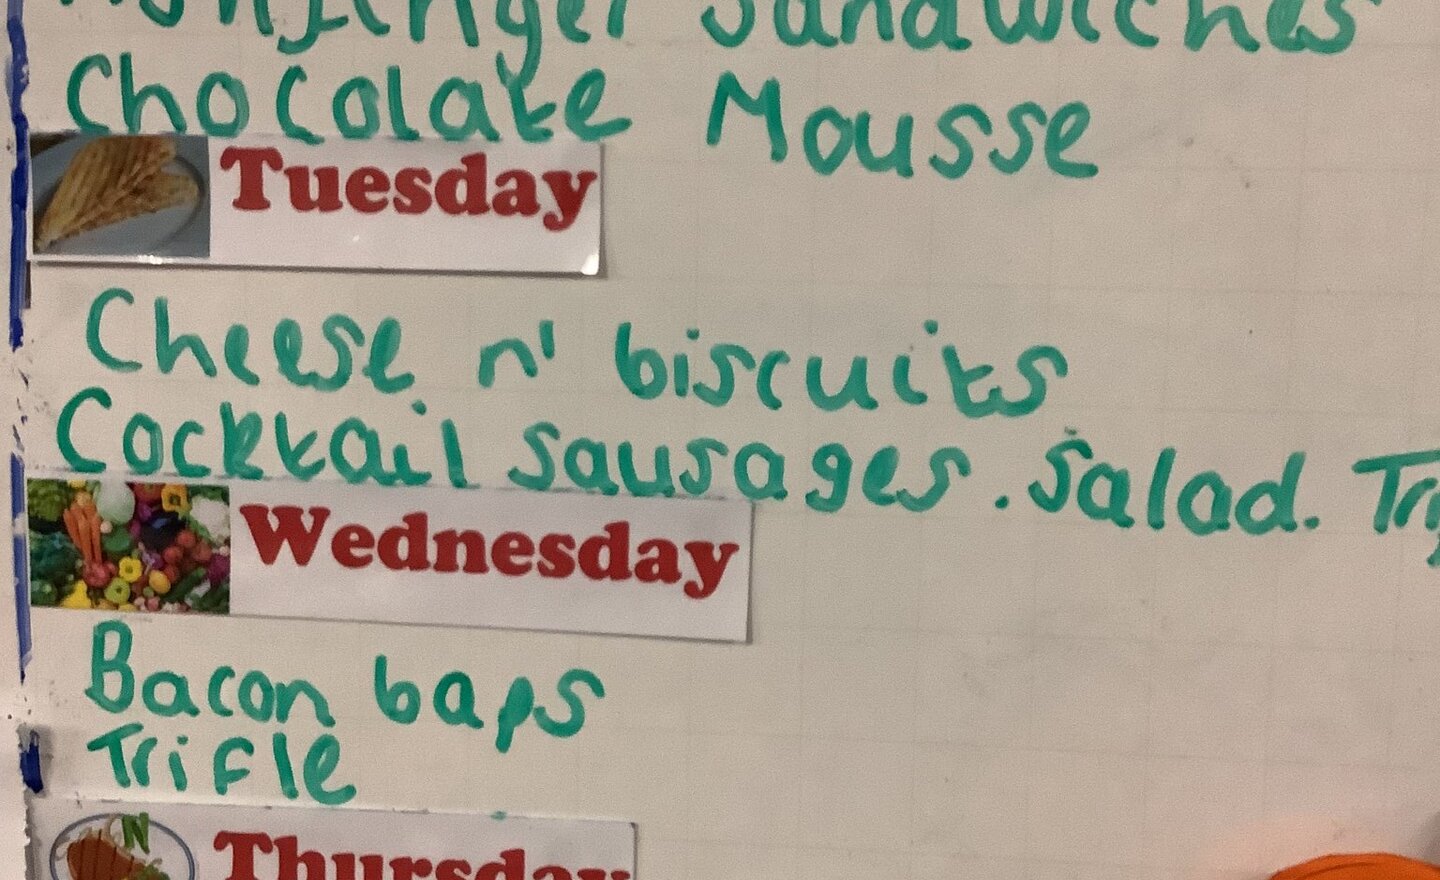 Sandwiches
Chocolate Mousse
Tuesday
Cheese n' biscuits
Cocktail sausages. Salad.
Wednesday
Bacon baps
Trifle
Thursday